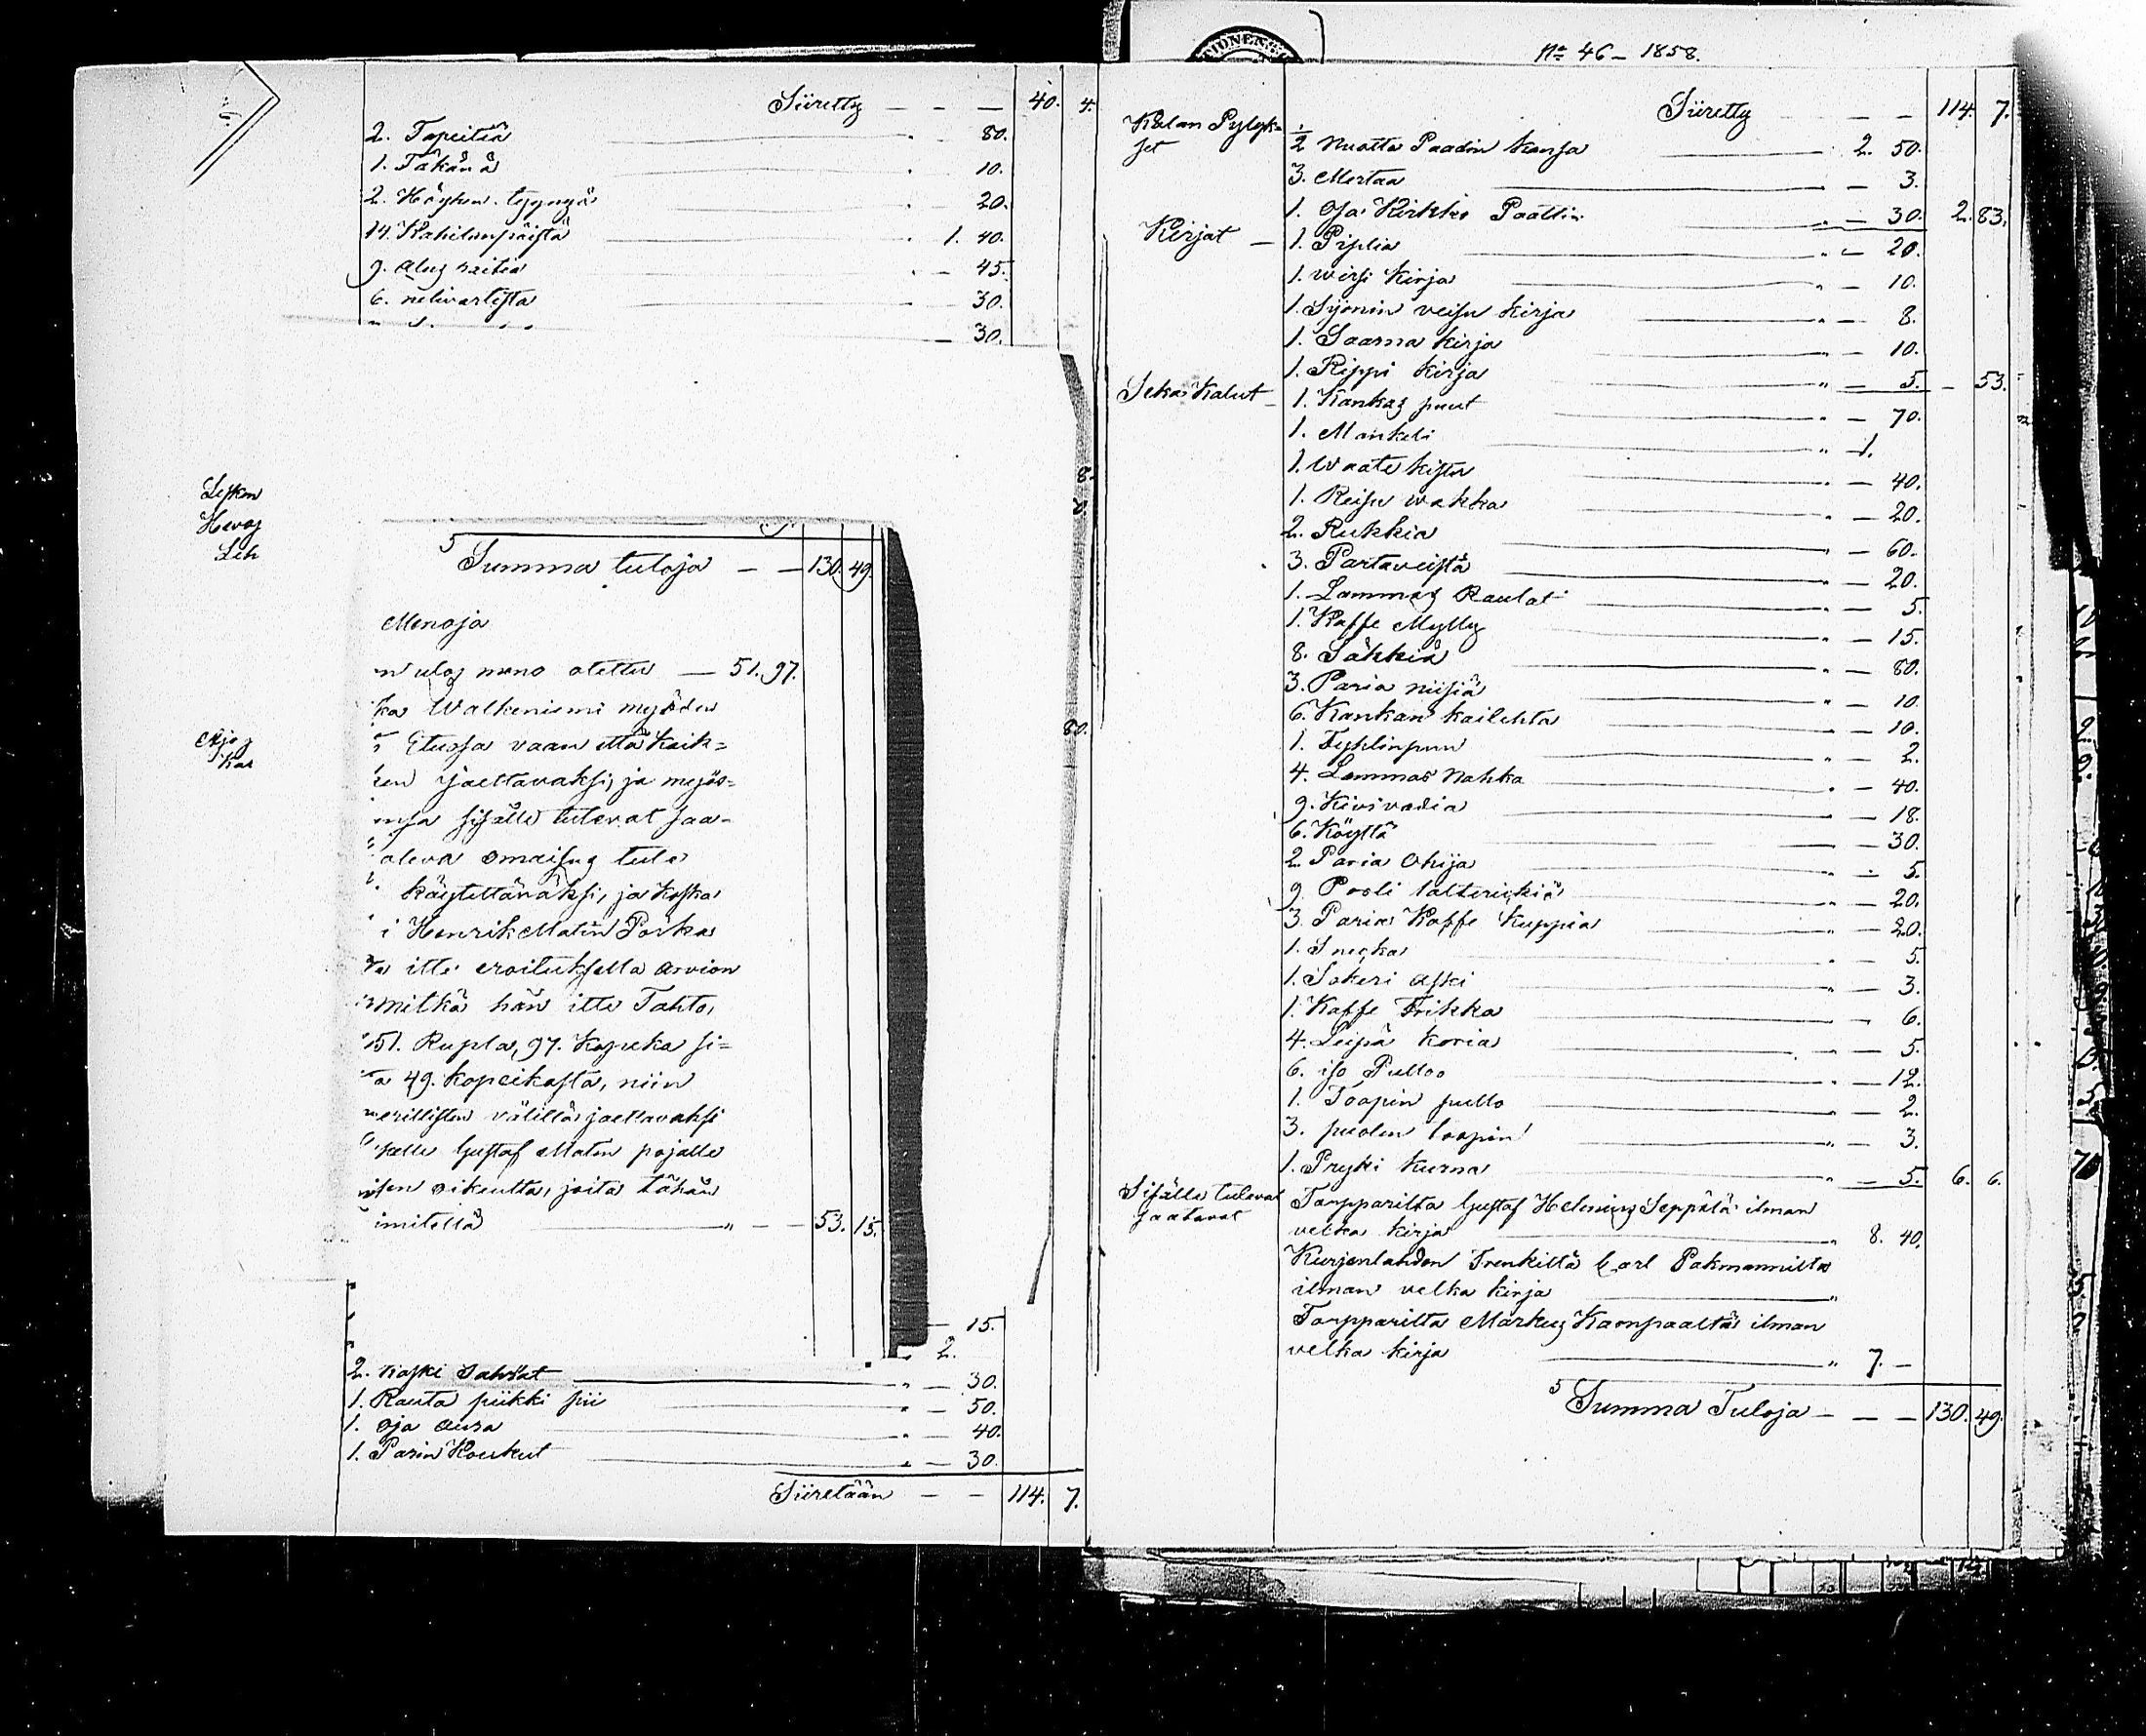 Siiretty — — — 40. 4.
2. Tapeitiä " 80.
1. Täkänä " 10.
2. Höyhen tyynyä " 20.
14. " 1. 40.
9. " — 45.
6. nelivartista " — 30.
— 30.
8.
Lesken
Hevos
Leh
Summa tuloja — — 130. 49.
Menoja
ulos meno otettu — 51. 97.
ka Walkeniemi myöden
Etussa vaan että kaik=
ken jaettavaksi, ja myös=
ensa sisälle tulevat saa-
oleva omaisus tule
käytettäväksi, ja koska
i Henrik Matin Poika
itte eroituksella arvion
mitkä hän itte Tahto,
51. Rupla, 97. Kopeka si=
ta 49. kopeikasta, niin
perillisten välillä jaettavaksi
Gustaf Matin pojalle
oikeutta, joita tähän
imitellä " — — 53. 15.
Ajo
Kal
80.
— 15.
2.
2. Kaski Sahrat " — 30.
1. Rauta piikki pii " — 50.
1. Oja aura " — 40.
1. Parin Koukut " — 30.
Siiretään — — 114. 7.
No 46 — 1858.
Siiretty — — 114. 7.
Kalan Pylyk=
set
1/2 Nuotta Paadin kansa 2. 50.
3. Mertaa " — 3.
1. Osa Kirkko Paattin " — 30. 2. 83.
Kirjat — 1. Piplia " — 20.
1. Wirsi kirja " — 10.
1. Syonin veisu kirja " — 8.
1. Saarna kirja " — 10.
1. Rippi kirja " — 5. — 53.
Seka Kalut — 1. Kankas puut " — 70.
1. Mankeli " 1.
1. Waate kistu " — 40.
1. Reisu wakka " — 20.
2. Rukkia " — 60.
3. Partaveistä " — 20.
1. Lammas Raudat " — 5.
1. Kaffe Mylly " — 15.
8. Säkkiä " — 80.
3. Paria niisiä " — 10.
6. Kankan kailehta " — 10.
1. " — 2.
4. Lammas Nahka " — 40.
9. Kivivadia " — 18.
6. Köyttä — 30.
2. Paria Ohija " — 5.
9. Posli talterickiä " — 20.
3. Paria Kaffe Kuppia " — 20.
1. Snecka " — 5.
1. Sokeri Aski " — 3.
1. Kaffe Trikka " 6.
4. Leipä koria " — 5.
6. iso Pulloo " — 12.
1. Toopin pullo " — 2.
3. puolen toopin " — 3.
1. Pryki kurna " — 5. 6. 6.
Sisälle tulevat
saatavat
Torpparilta Gustaf Helenius Seppälä ilman
velka kirja " 8. 40.
Kurjenlahden Trenkiltä Carl Pakmannilta
ilman velka kirja "
Torpparilta Markus Kaonpaaltä ilman
velka kirja " 7. —
Summa Tuloja — — — 130. 49.